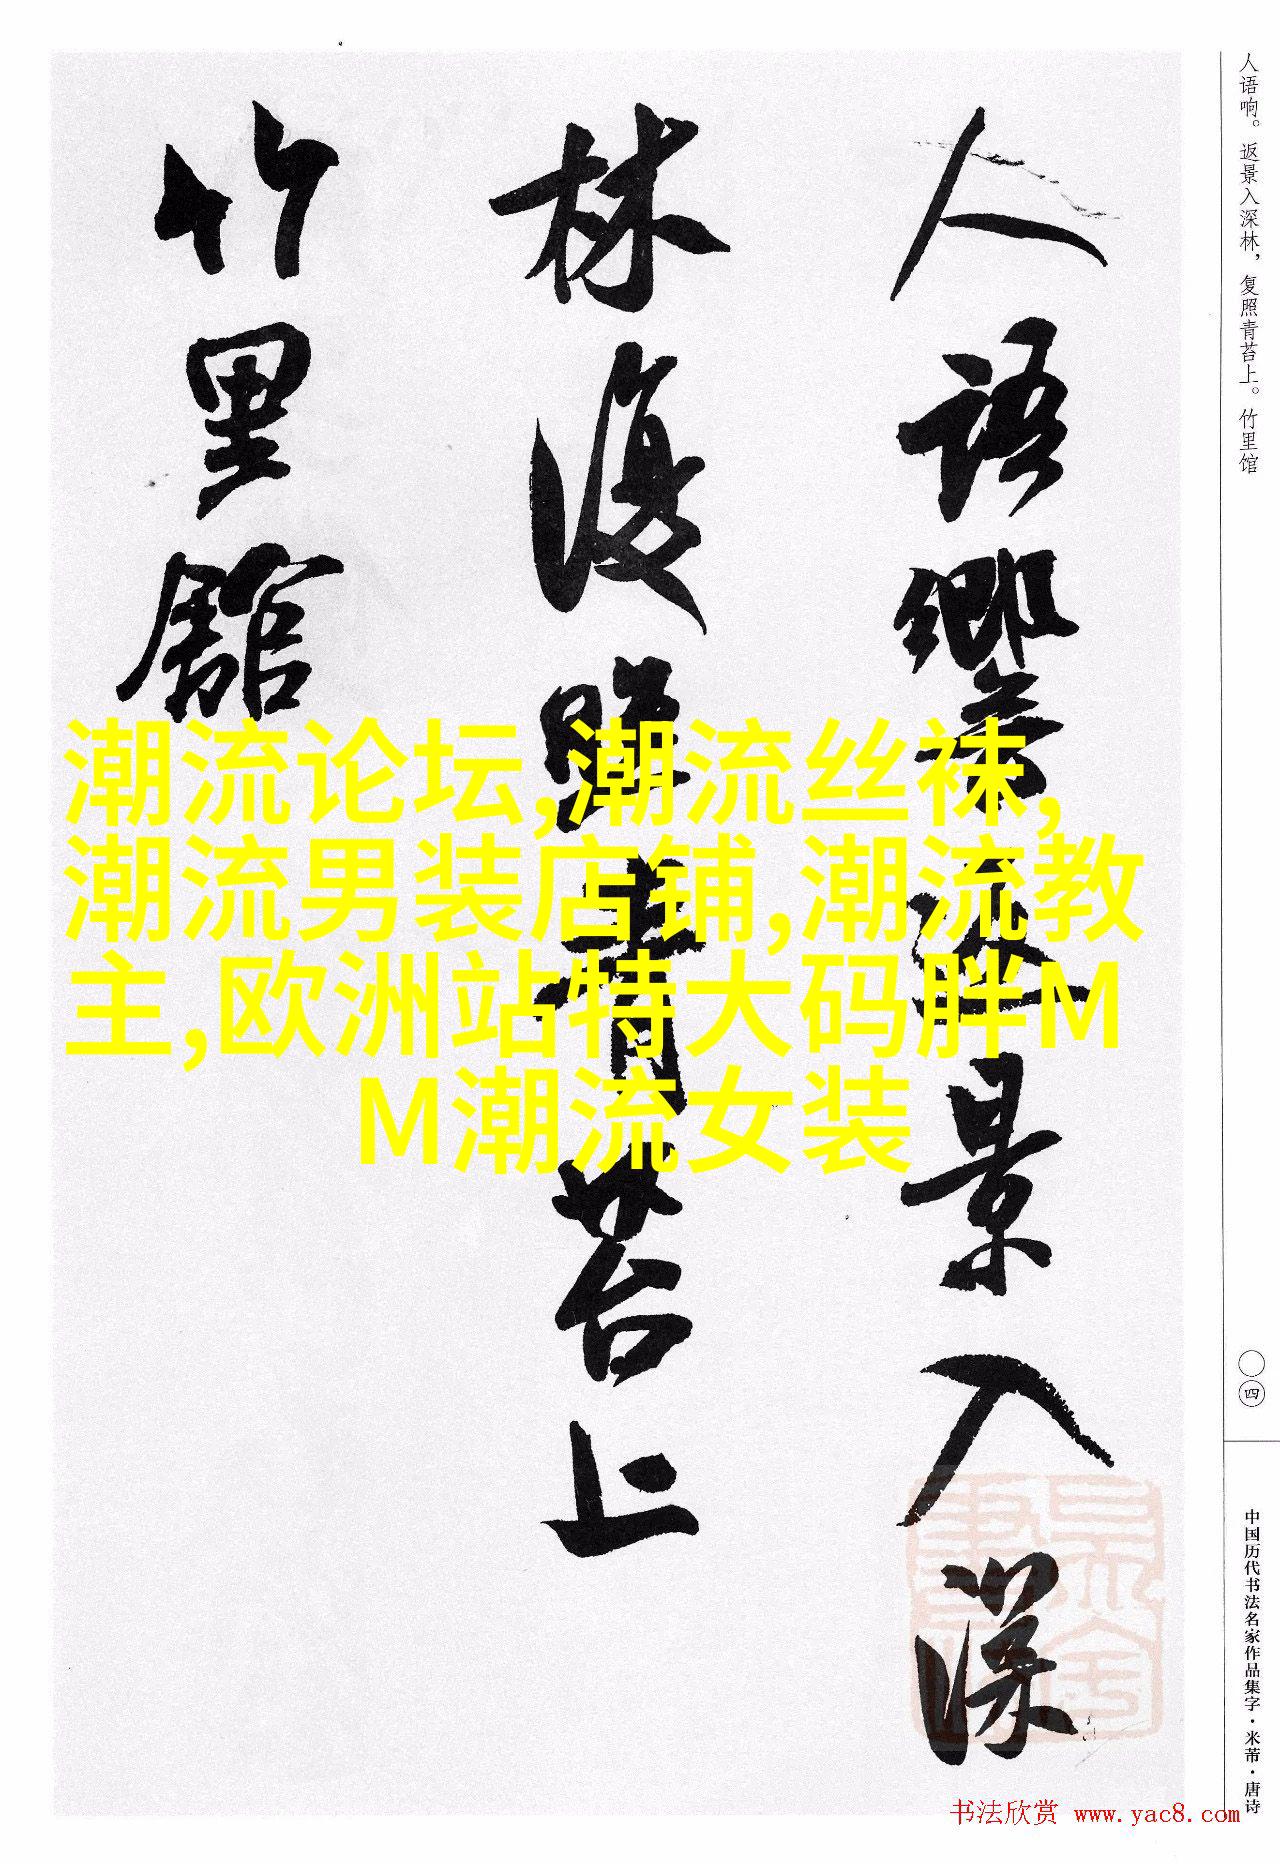 人语响。返景入深林，复照青苔上。竹里馆
人语响返景入深
林复照青苔上
竹里馆
潮流论坛,潮流丝袜,
潮流男装店铺,潮流教
主,欧洲站特大码胖M
M潮流女装
〇四
中国历代书法名家作品集字·米芾·唐诗
书法欣赏 www.yac8.com